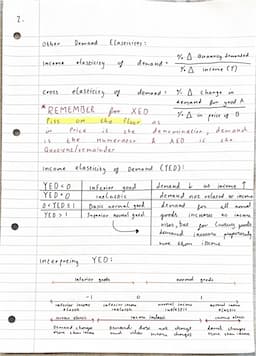 2.
Other Demand Elasticities:
Income elasticity of demand = % Δ Quantity demanded
% Δ income (Y)
Cross elasticity of demand = % Δ change in
demand for good A
% Δ in price of B
* REMEMBER for XED
Piss on the floor as
in Price is the denominator, demand
is the numerator & XED is the
Quotient/remainder
Income elasticity of Demand (YED):
YED<0 inferior good demand ↓ as income ↑
YED=0 inelastic demand not related to income
0<YED≤1 Basic normal good demand for all normal
YED>1 Superior normal good goods increase as income
rises, but for luxury goods
demand increases proportionally
more than income.
Interpreting YED:
inferior goods normal goods
-1 0 1
inferior income elastic inferior income inelastic normal income inelastic normal income elastic
income elastic income inelastic income elastic
Demand changes Demand does not change demand changes
more than income much when income changes more than income